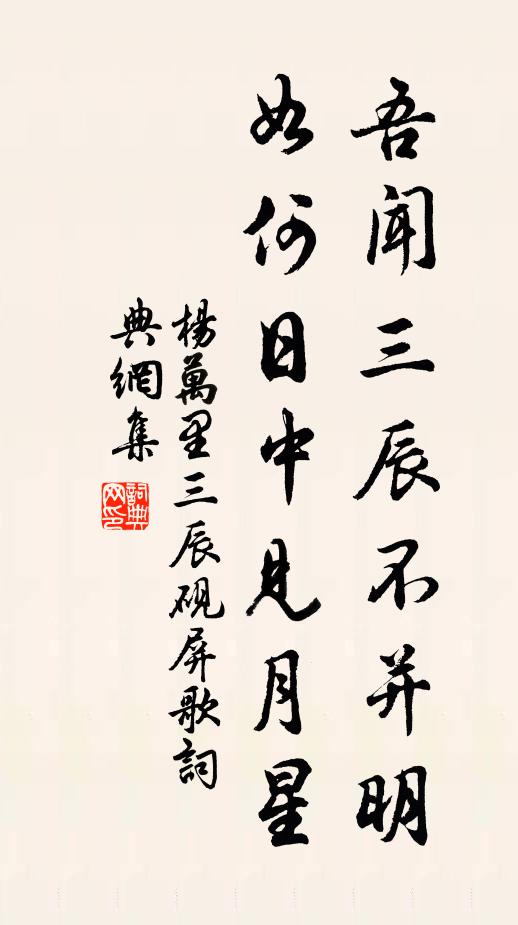 吾闻三辰不并明
如何日中见月星
楊萬里三辰砚屏歌詞
典網集
詞典网印